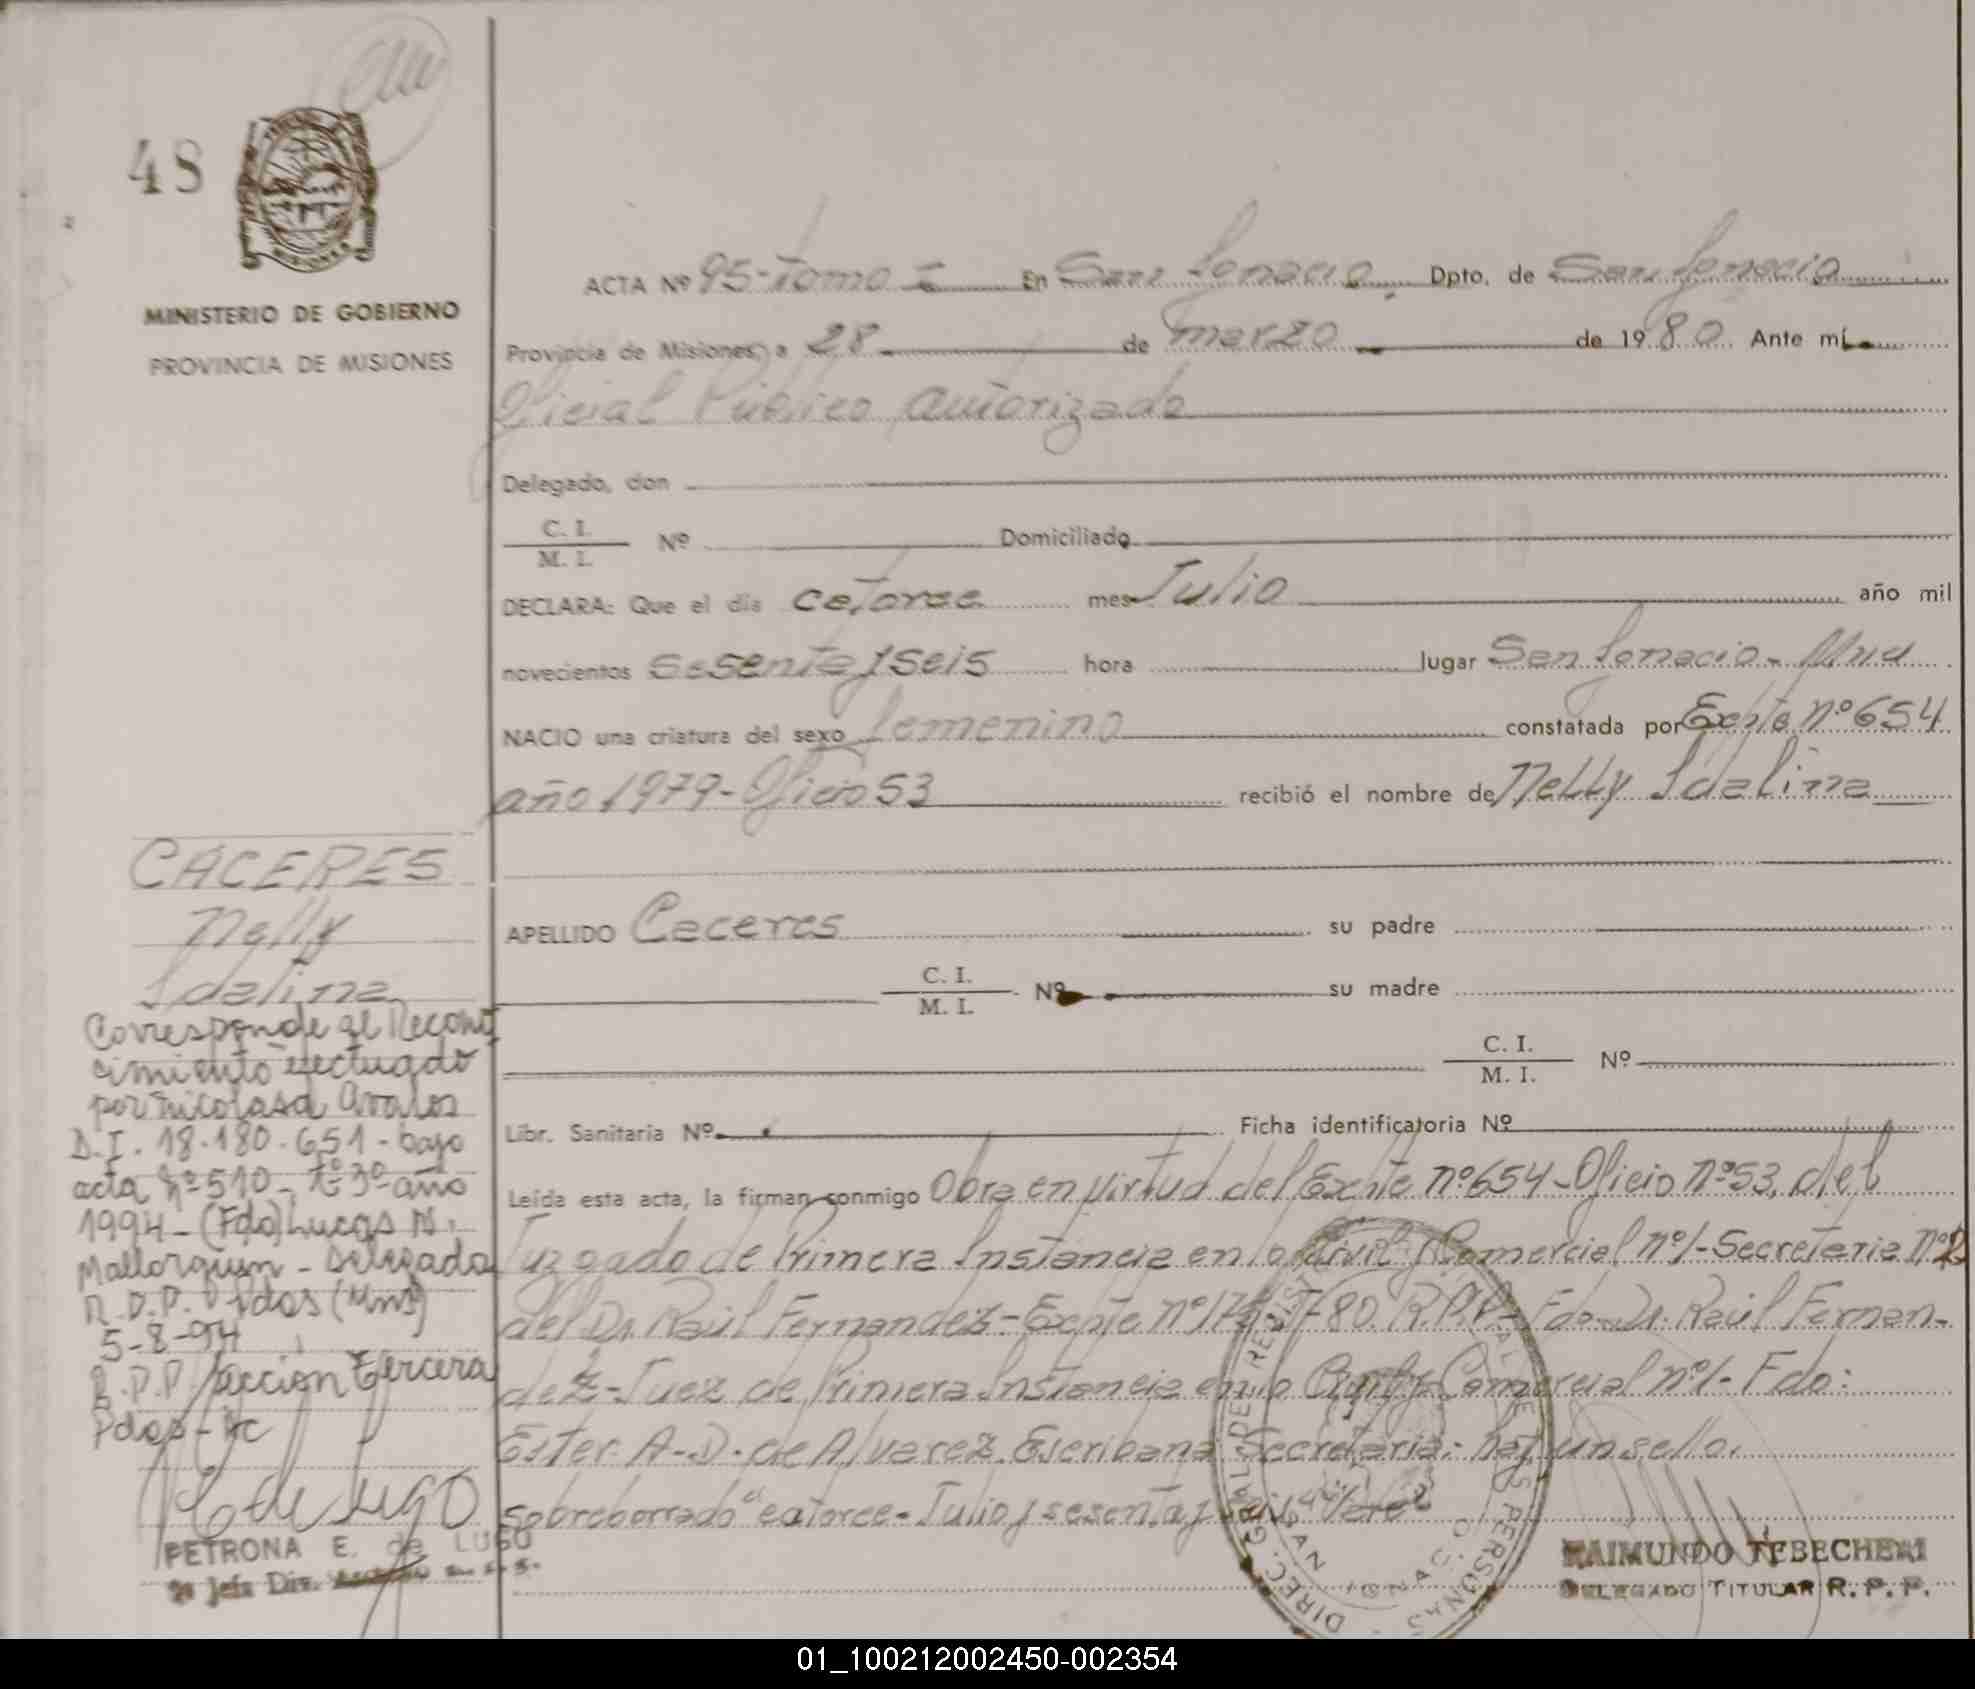 48
MINISTERIO DE GOBIERNO
PROVINCIA DE MISIONES
ACTA Nº 95-Tomo I En San Ignacio Dpto. de San Ignacio
Provincia de Misiones, a 28 de marzo de 1980. Ante mí
Oficial Público autorizado
Delegado, don
C. I.
M. I.
Nº Domiciliado
DECLARA: Que el día catorce mes Julio año mil
novecientos sesenta y seis hora lugar San Ignacio-
NACIO una criatura del sexo femenino constatada por Expte nº 654
año 1979-Oficio 53 recibió el nombre de Nelly Idalina
APELLIDO Caceres su padre
C. I.
M. I.
Nº su madre
C. I.
M. I.
Nº
Libr. Sanitaria Nº Ficha identificatoria Nº
Leída esta acta, la firman conmigo Obra en virtud del Expte nº 654-Oficio nº 53, del
Juzgado de Primera Instancia en lo Civil y Comercial nº 1-Secretaria nº 2
del Dr. Raúl Fernandez-Expte nº 80. R.P.P. Fdo-Dr. Raúl Fernan-
dez-Juez de Primera Instancia en lo Civil y Comercial nº 1- Fdo:
Ester A-D. de Alvarez. Escribana Secretaria: hay un sello.
Sobreborrado "catorce-Julio y sesenta y seis" Vale
CACERES
Nelly
Idalina
Corresponde al Recono
cimiento efectuado
por Nicolasa Avalos
D.I. 18.180.651-bajo
acta nº 510-tº 3º año
1994-(Fdo) Lucas N.
Mallorquin-Delegado
R.D.P. Pdas (Mns)
5-8-94
R.P.P. Sección tercera
Pdas-
PETRONA E. de LUGO
2º Jefe Div.
DIREC. GRAL. DE REGISTRO
DE LAS PERSONAS
SAN IGNACIO
RAIMUNDO TEBECHERI
DELEGADO TITULAR R. P. P.
01_100212002450-002354